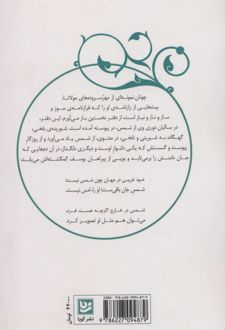 چونان نمونه‌ای از مهرْسروده‌های مولانا،
بیت‌هایی از رازنامه‌ی او را که فرازنامه‌ی سوز و
ساز و ناز و نیاز است، از دفتر نخستین باز می‌آورم. این دفتر،
در سالیان دوری وی از شمس، در پیوسته آمده است. شوریده‌ی بلخی،
گهگاه، به شیرینی و تلخی، در مثنوی، از شمس یاد می‌آورد و از روزگار
پیوست و گسست که یکی دلنواز اوست و دیگری دلگداز، در آن دم‌هایی که
جان دامنش را برمی‌تابد و بویی از پیراهان یوسف گمگشته‌اش می‌یابد:
خود غریبی در جهان چون شمس نیست؛
شمس جان باقی‌ست؛ او را، امس نیست.
شمس در خارج اگرچه هست فرد،
می‌توان هم مثل او تصویر کرد.
۲۴۰۰۰ تومان
نشر گویا
9786227094879